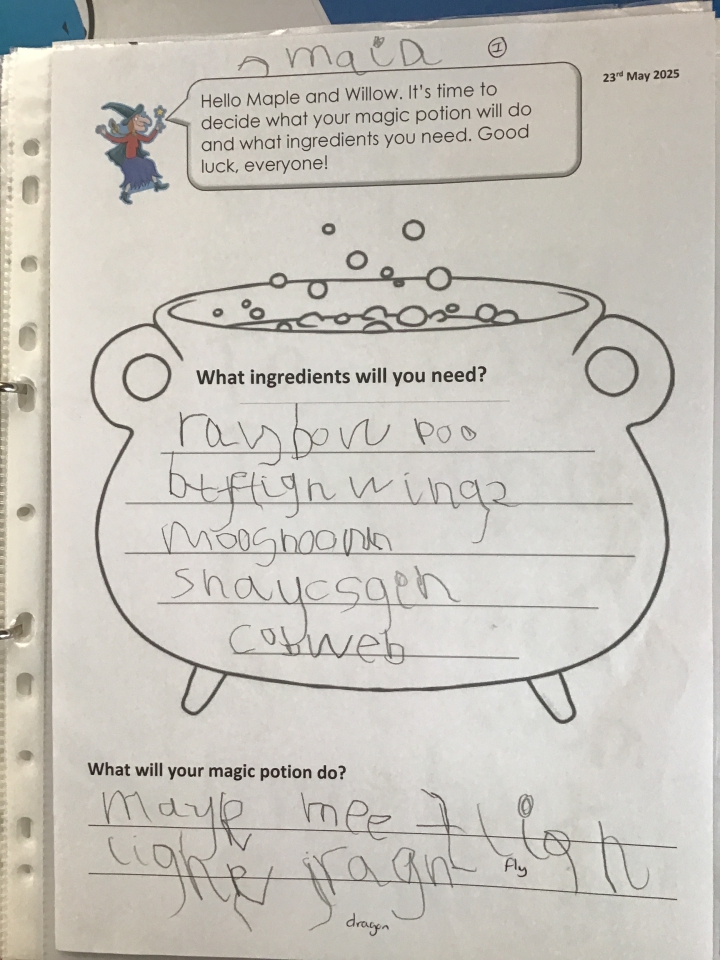 Amaia I
23rd May 2025
Hello Maple and Willow. It's time to
decide what your magic potion will do
and what ingredients you need. Good
luck, everyone!
What ingredients will you need?
raybow poo
btflign wings
mooghoonn
snaycsgen
cobweb
What will your magic potion do?
mayk mee fligh
lighk jragn
fly
dragon